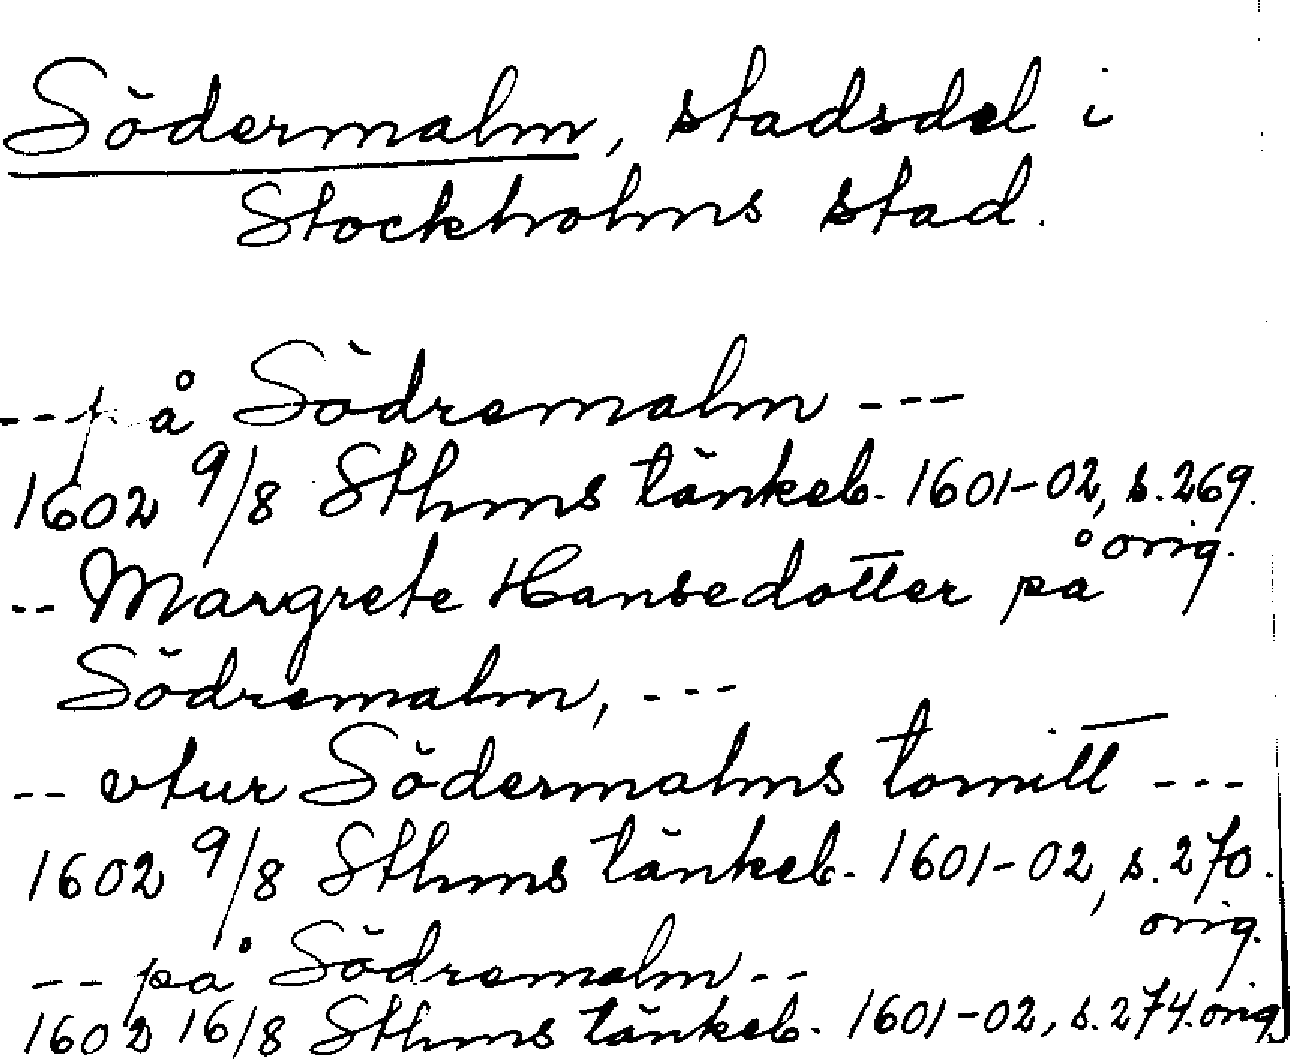 Södermalm, stadsdel i
Stockholms stad.
-- på Södremalm ---
1602 9/8 Sthms tänkeb. 1601-02, s. 269.
orig.
-- Margrete Hansedotter på
Södremalm, ---
-- vtur Södermalms tomitt ---
1602 9/8 Sthms tänkeb. 1601-02, s. 270.
orig.
-- på Södremalm --
1602 16/8 Sthms tänkeb. 1601-02, s. 274. orig